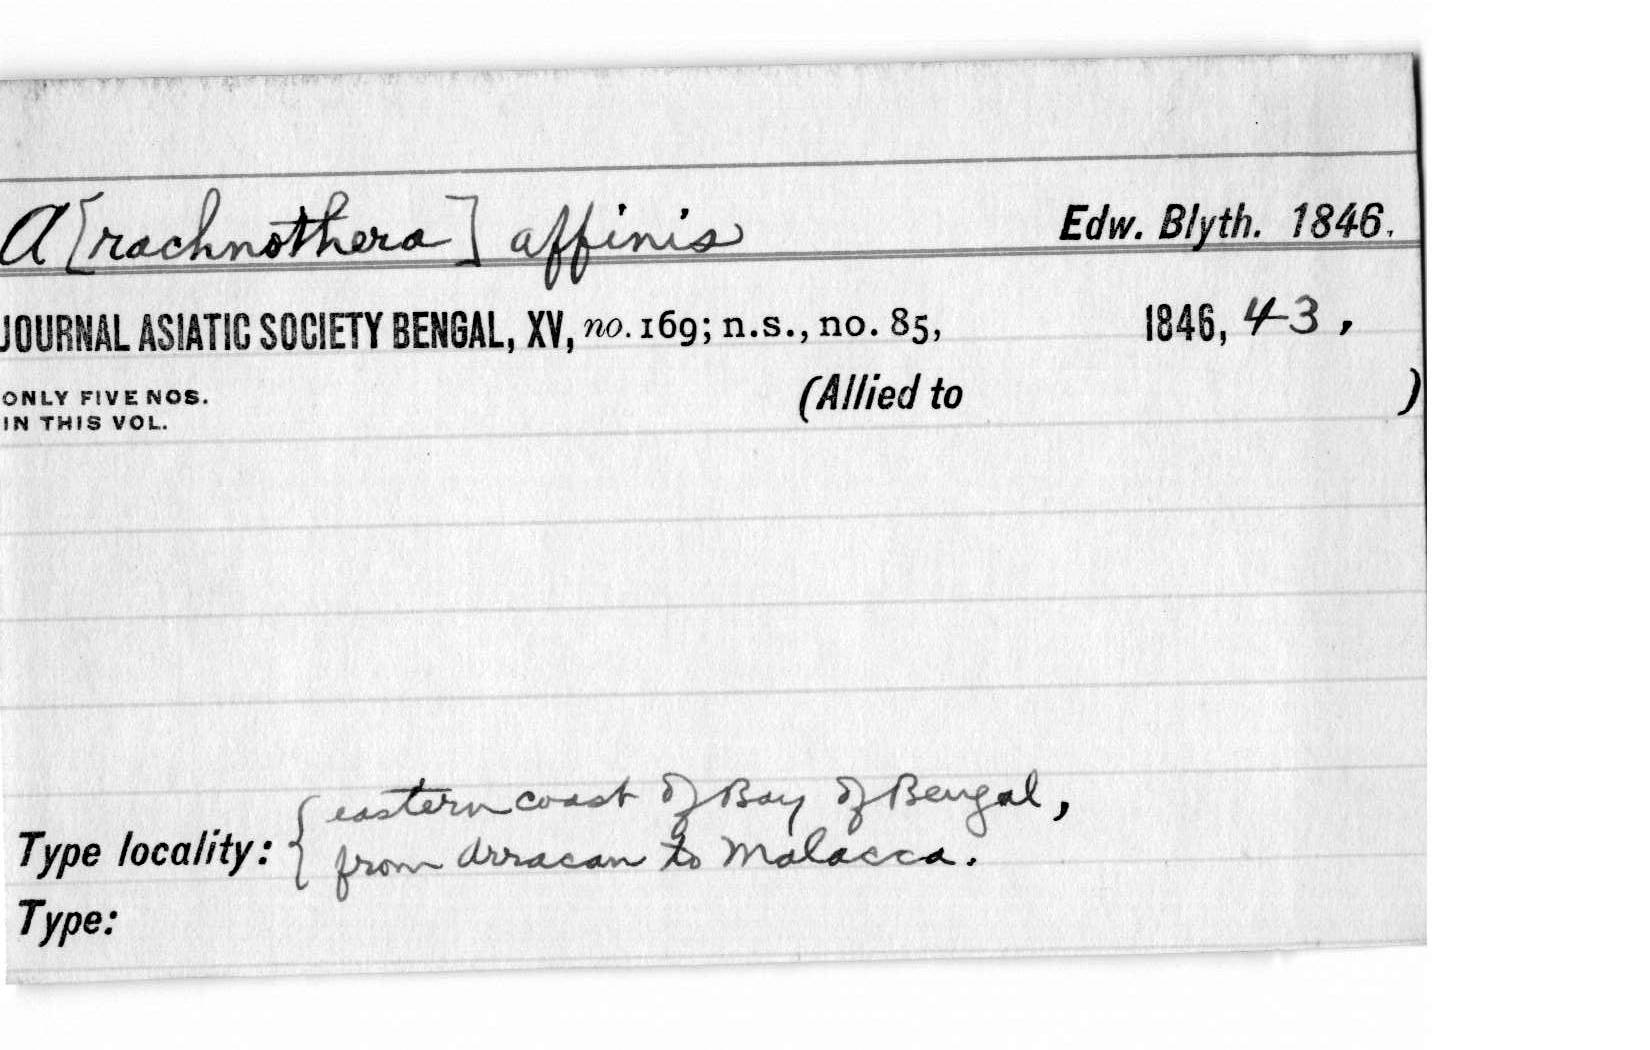 A[rachnothera] affinis Edw. Blyth. 1846.
JOURNAL ASIATIC SOCIETY BENGAL, XV, no. 169; n.s., no. 85, 1846, 43,
ONLY FIVE NOS. (Allied to )
IN THIS VOL.
eastern coast of Bay of Bengal,
Type locality: { from Arracan to Malacca.
Type: